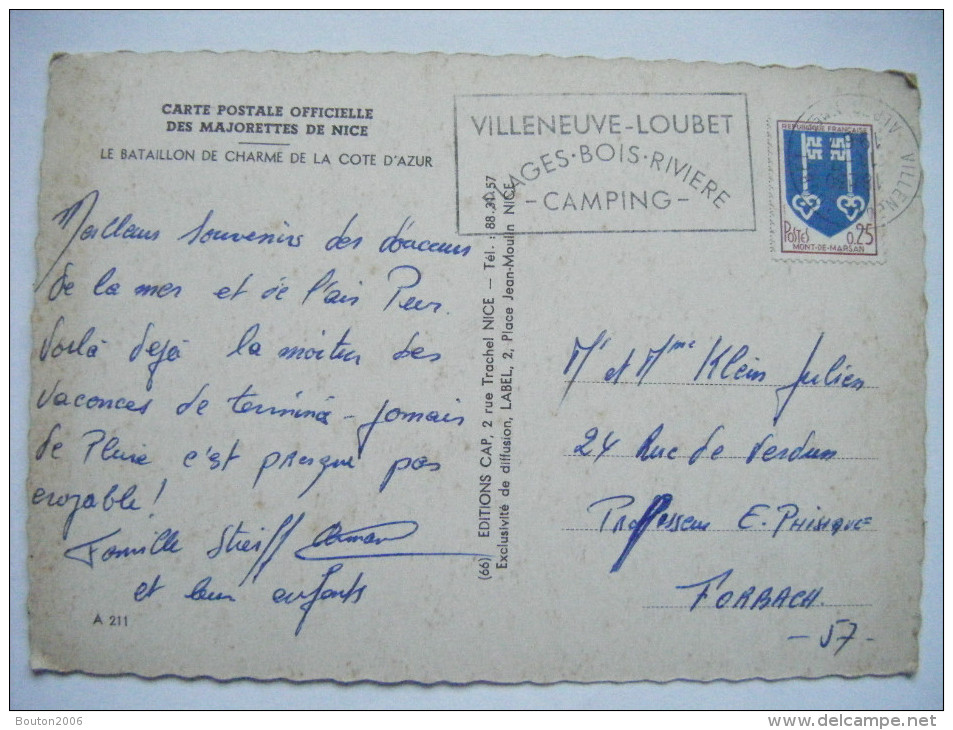 CARTE POSTALE OFFICIELLE
DES MAJORETTES DE NICE
LE BATAILLON DE CHARME DE LA COTE D'AZUR
Meilleurs Souvenirs des douceurs
de la mer et de l'air Pur.
Voilà dejà la moitier des
vacances de terminé - Jamais
de Pluie c'est presque pas
croyable!
Famille Streiff
et leur enfants
A 211
(66) EDITIONS CAP, 2 rue Trachel NICE — Tél. : 88.30.57
Exclusivité de diffusion, LABEL, 2, Place Jean-Moulin NICE
VILLENEUVE-LOUBET
PLAGES·BOIS·RIVIERE
-CAMPING-
REPUBLIQUE FRANÇAISE
POSTES 0,25
MONT-DE-MARSAN
Mr et Mme Klein Julien
24 Rue de Verdun
Professeur E. PHISIQUE
FORBACH.
- 57 -
Bouton2006
delcampe.net